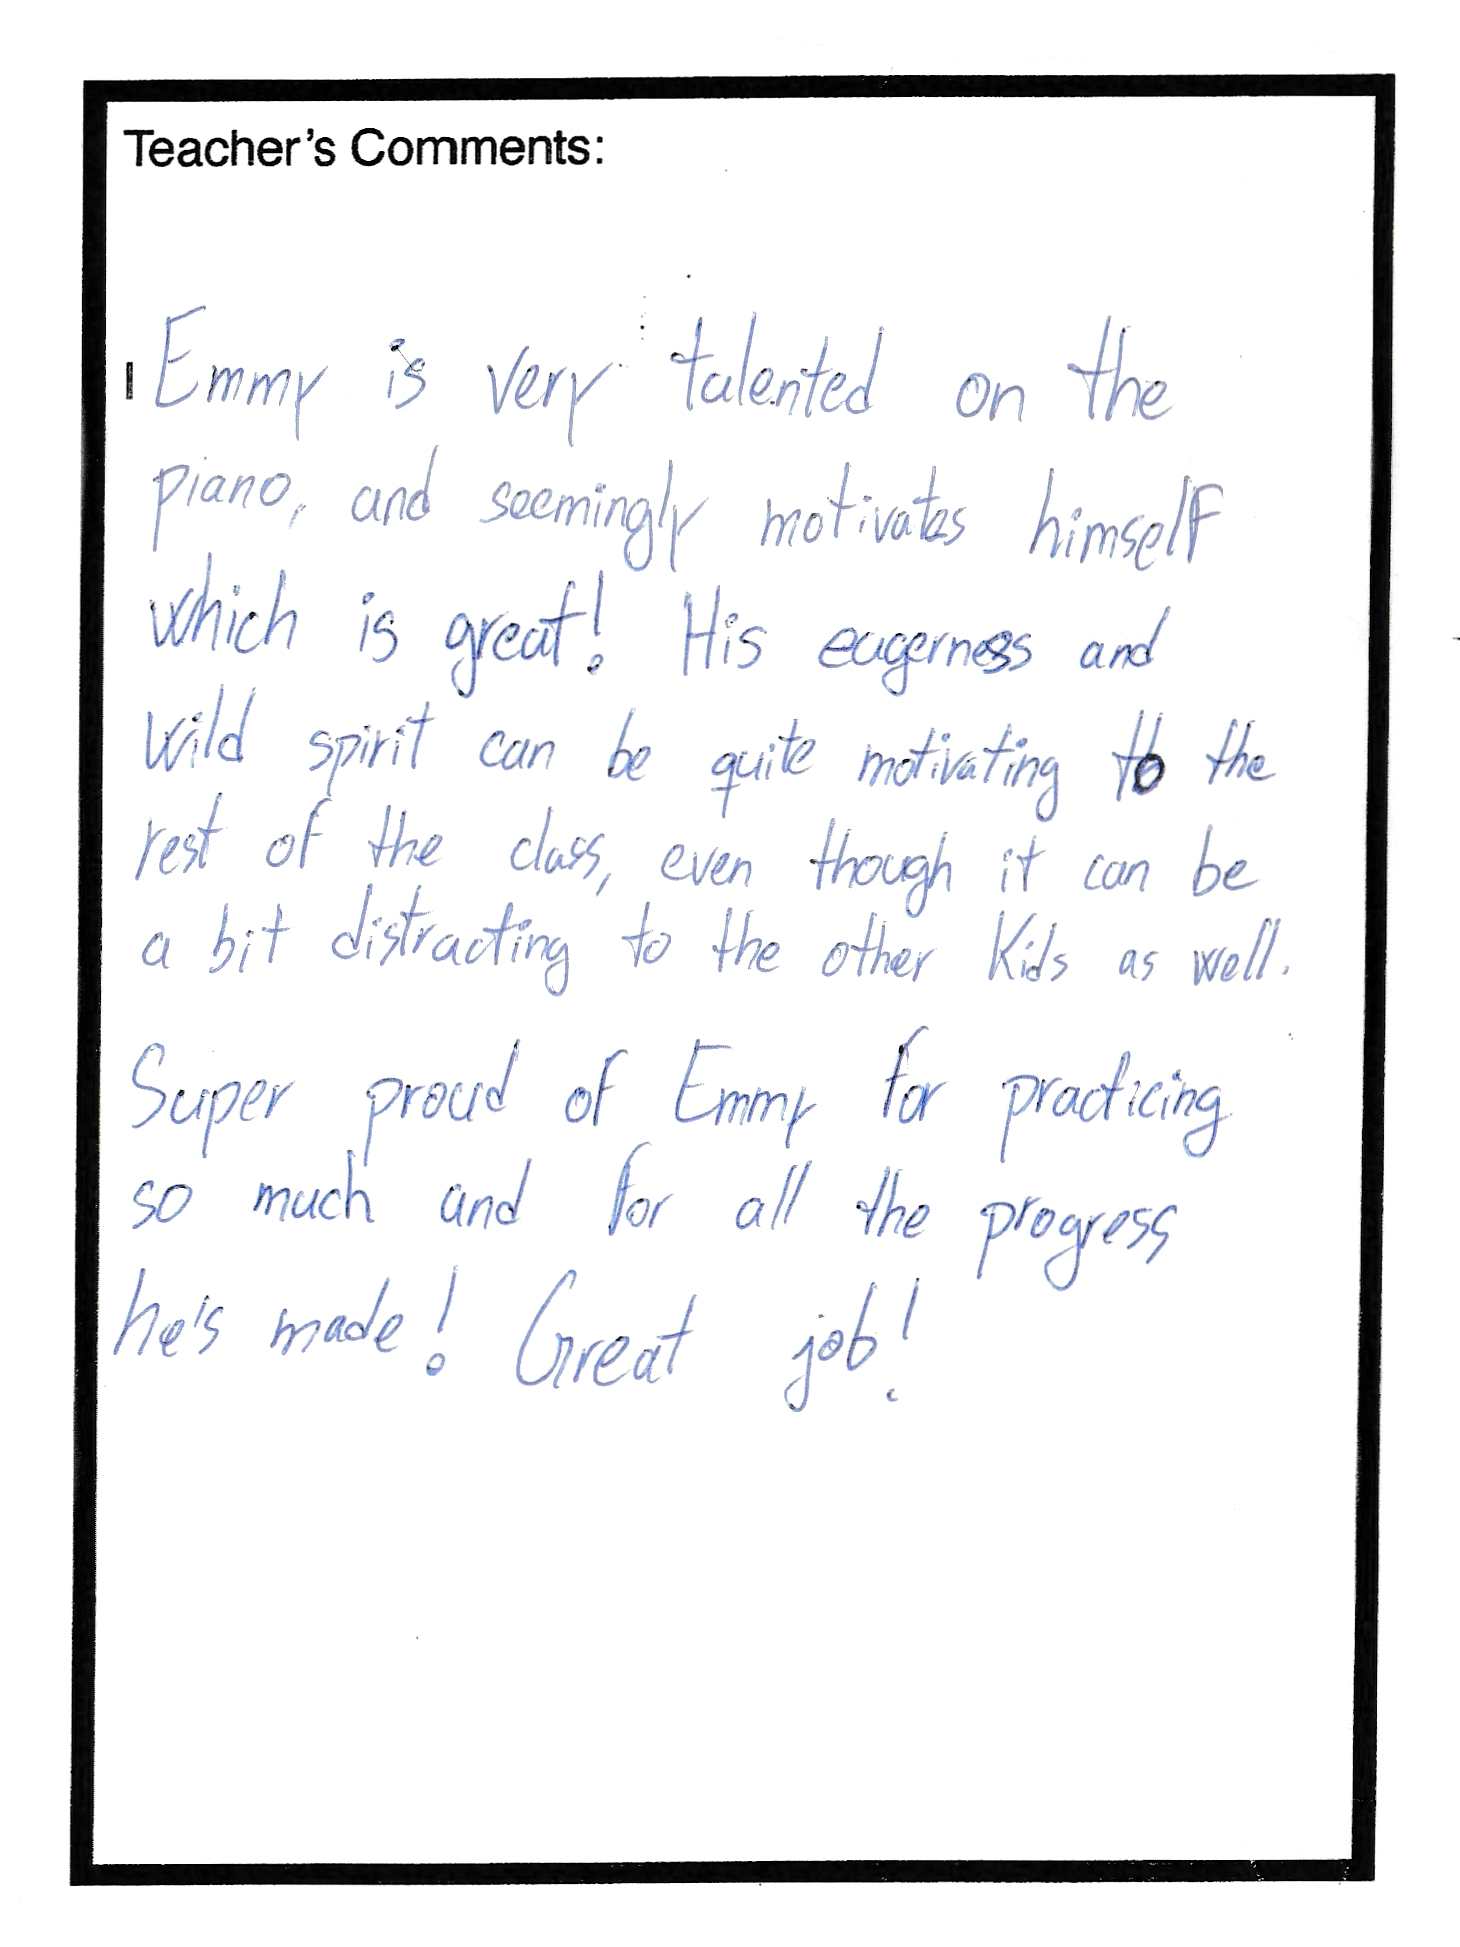 Teacher's Comments:
Emmy is very talented on the
piano, and seemingly motivates himself
which is great! His eagerness and
wild spirit can be quite motivating to the
rest of the class, even though it can be
a bit distracting to the other kids as well.
Super proud of Emmy for practicing
so much and for all the progress
he's made! Great job!